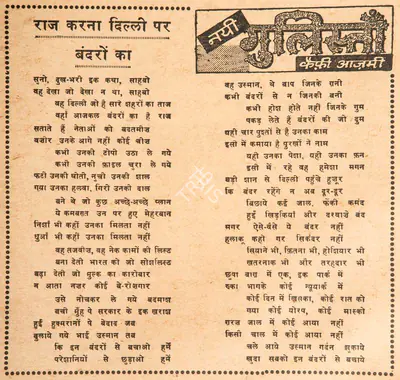 राज करना दिल्ली पर
बंदरों का
नयी
गुलिस्ताँ
कैफ़ी आज़मी
सुनो, दुख-भरी इक कथा, साहबो
वह देखा जो देखा न था, साहबो
वह दिल्ली जो है सारे शहरों का ताज
वहाँ आजकल बंदरों का है राज
सताते हैं नेताओं को बदतमीज़
बजोर उनके आगे नहीं कोई चीज
कभी उनकी टोपी उठा ले गये
कभी उनकी फ़ाइल चुरा ले गये
फटी उनकी धोती, नुची उनकी शाल
गया उनका हलवा, गिरी उनकी दाल
बने थे जो कुछ अच्छे-अच्छे प्लान
ये कमबख्त उन पर हुए मेहरबान
निशाँ भी कहीं उनका मिलता नहीं
धुआँ भी कहीं उनका मिलता नहीं
वह तजवीज, वह नेक कामों की लिस्ट
बना देती भारत को जो सोशलिस्ट
बढ़ा देती जो मुल्क का कारबार
न आता नजर कोई बे-रोज़गार
उसे नोचकर ले गये बदमाश
बची यूँ ही पे सरकार के इक खराश
हुई हुक्मरानों पे बेदाद जब
बुलाये गये भाई उस्मान तब
कि इन बंदरों से बचाओ हमें
परेशानियों से छुड़ाओ हमें
वह उस्मान, थे बाप जिनके ग़नी
कभी बंदरों से न जिनकी बनी
कभी होश होते नहीं जिनके गुम
पकड़ लेते हैं बंदरों की जो दुम
यही चार पुश्तों से है उनका काम
इसी में कमाया है पुरखों ने नाम
यही उनका पेशा, यही उनका फ़न
इसी में रहे वह हमेशा मगन
बड़ी शान से दिल्ली पहुँचे हुज़ूर
कि बंदर रहेंगे न अब दूर-दूर
बिछाये कई जाल, फेंकी कमंद
हुईं खिड़कियाँ और दरवाजे बंद
मगर ऐसे-वैसे थे बंदर नहीं
हलाकू कहीं गर सिकंदर नहीं
सियाने भी, फ़ितना भी, होशियार भी
खतरनाक भी और तरहदार भी
छुपा बाग़ में एक, इक पार्क में
भागके कोई न्यूयार्क में
कोई दिन में खिसका, कोई रात को
गया कोई योरप, कोई मास्को
ग़रज जाल में कोई आया नहीं
किसी चाल में कोई आया नहीं
चले आये उस्मान गर्दन झुकाये
खुदा सबको इन बंदरों से बचाये